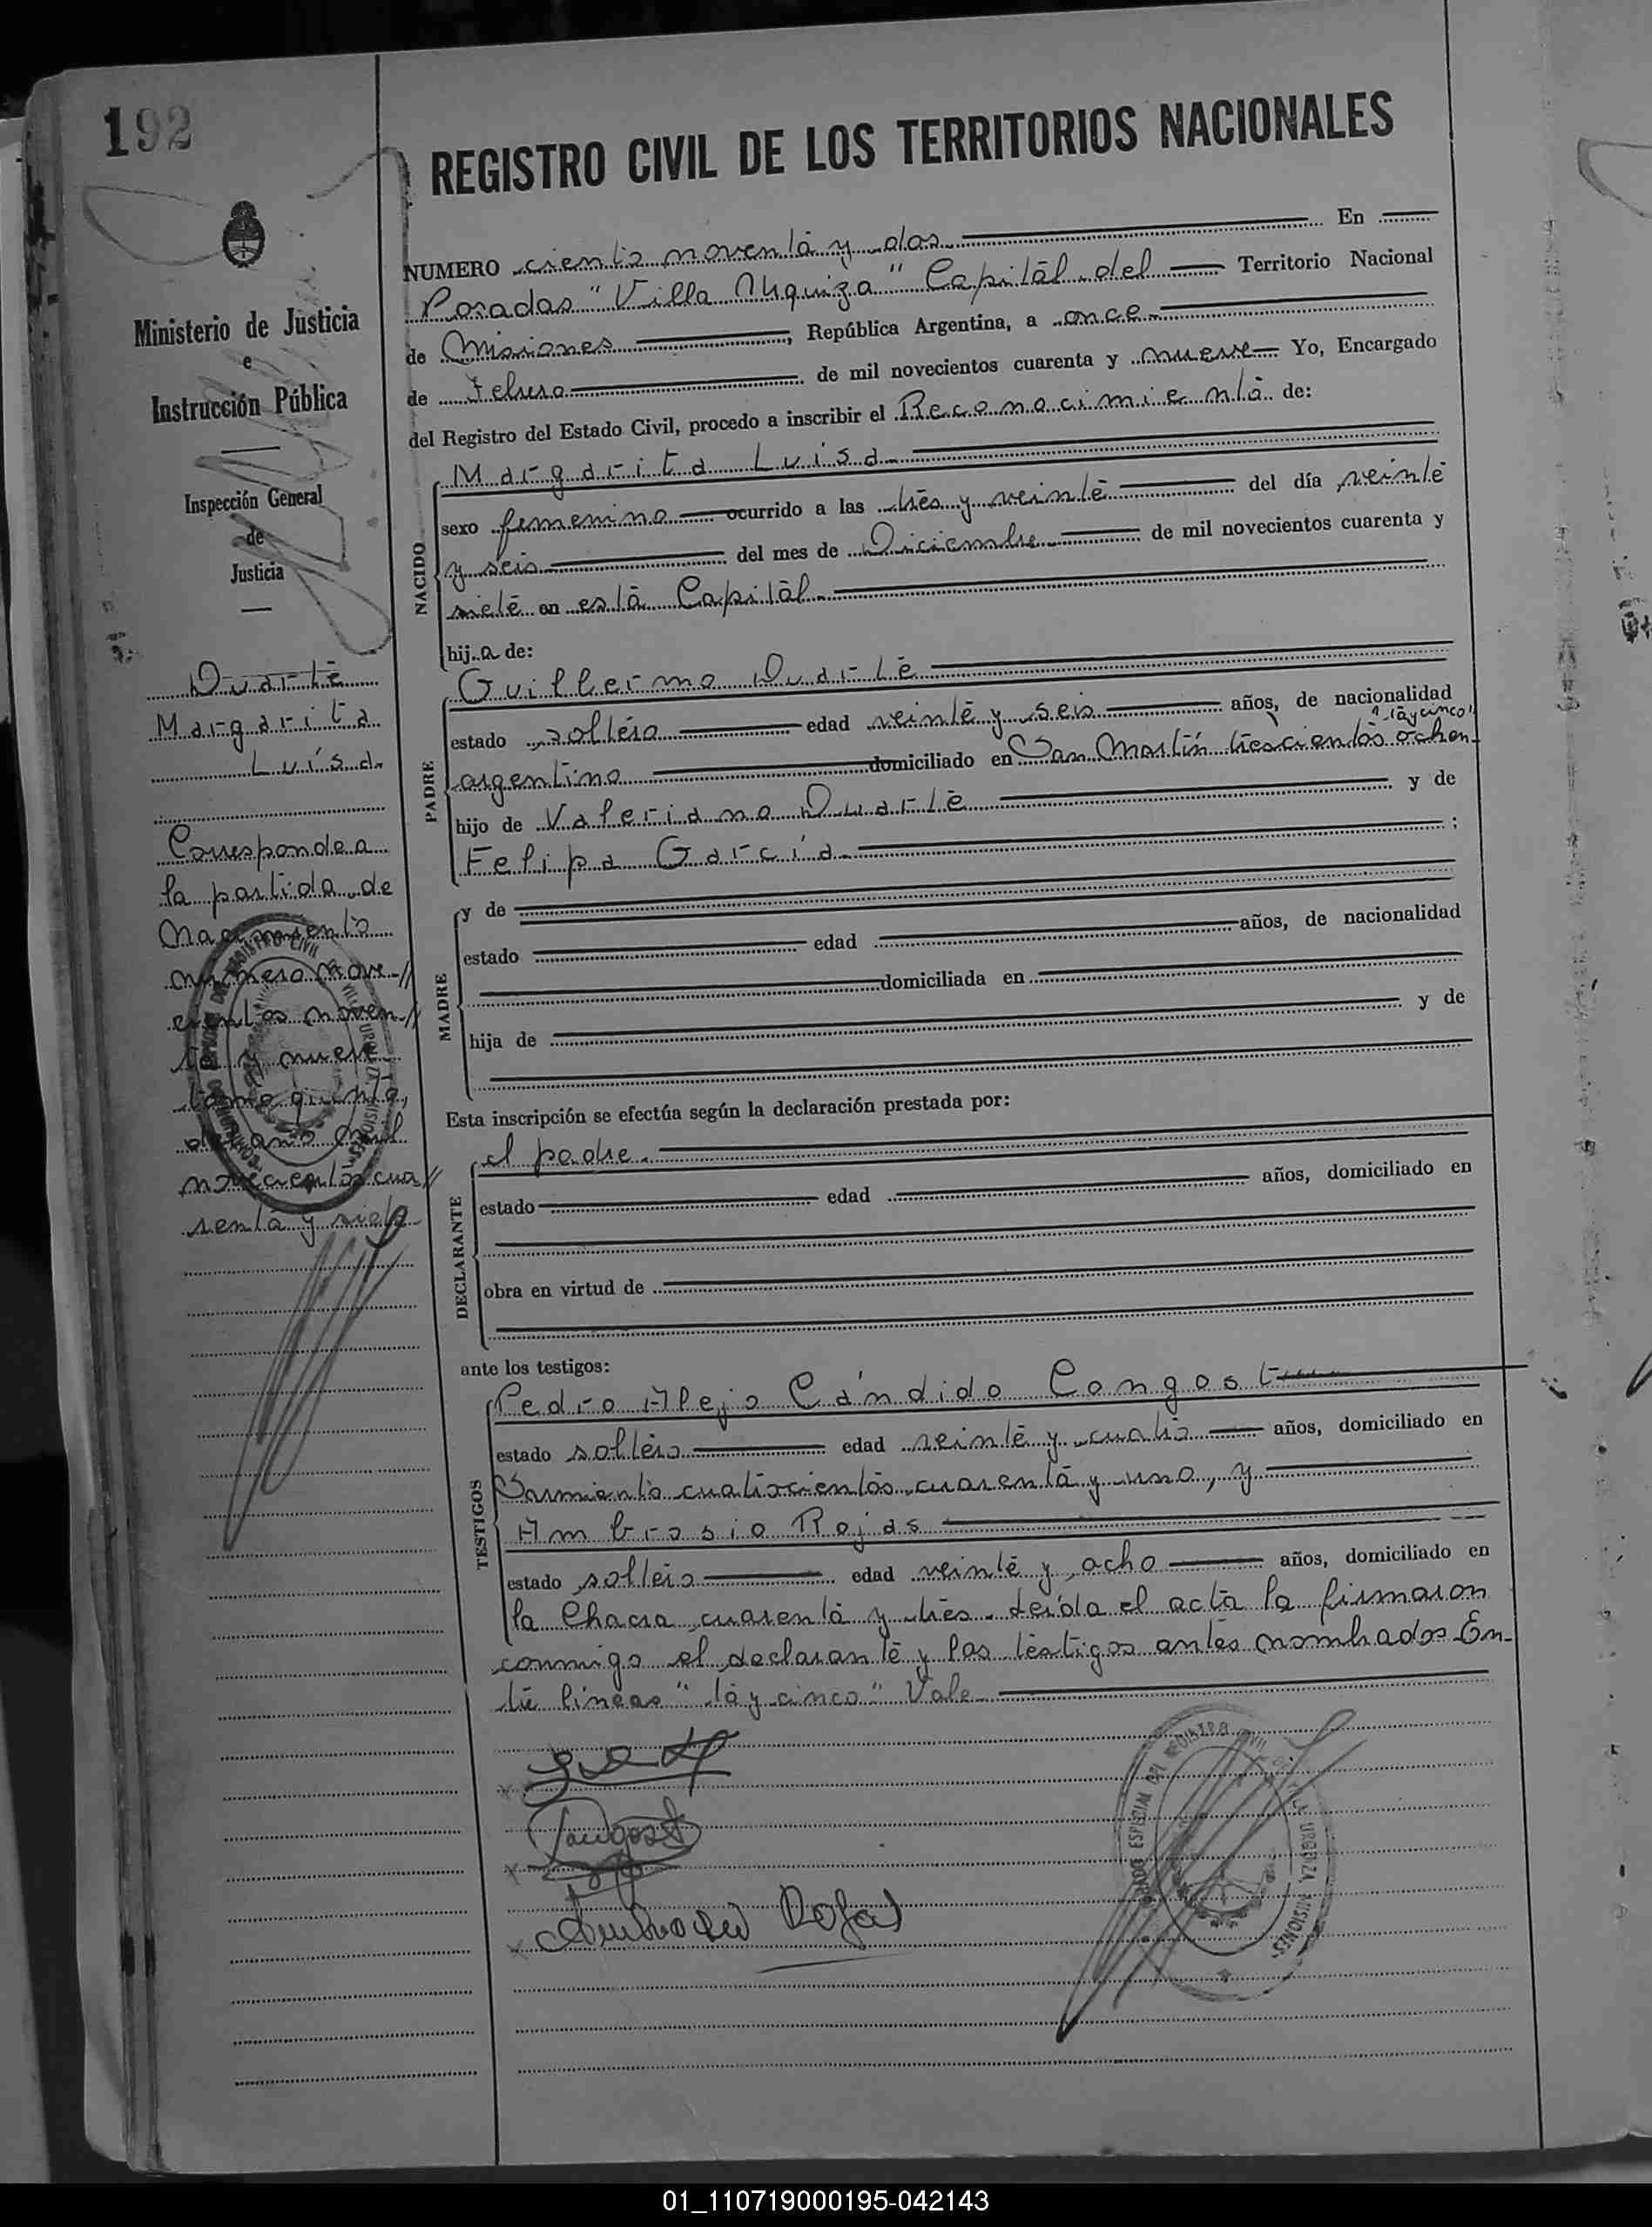 192
REGISTRO CIVIL DE LOS TERRITORIOS NACIONALES
Ministerio de Justicia
e
Instrucción Pública
Inspección General
de
Justicia
Duarte
Margarita
Luisa
Corresponde a
la partida de
Nacimiento
número nove-//
cientos noven//
ta y nueve
tomo quinto,
del año mil
novecientos cua//
renta y siete
NUMERO ciento noventa y dos En
Posadas "Villa Urquiza" Capital del Territorio Nacional
de Misiones, República Argentina, a once
de Febrero de mil novecientos cuarenta y nueve Yo, Encargado
del Registro del Estado Civil, procedo a inscribir el Reconocimiento de:
NACIDO
Margarita Luisa
sexo femenino ocurrido a las tres y veinte del día veinte
y seis del mes de Diciembre de mil novecientos cuarenta y
siete en esta Capital.
hija de:
PADRE
Guillermo Duarte
estado soltero edad veinte y seis años, de nacionalidad
"ta y cinco"
argentino domiciliado en San Martín trescientos ochen-
hijo de Valeriano Duarte y de
Felipa García ;
MADRE
y de
estado edad años, de nacionalidad
domiciliada en
hija de y de
Esta inscripción se efectúa según la declaración prestada por:
DECLARANTE
el padre.
estado edad años, domiciliado en
obra en virtud de
ante los testigos:
TESTIGOS
Pedro Alejo Cándido Congost
estado soltero edad veinte y cuatro años, domiciliado en
Sarmiento cuatrocientos cuarenta y uno, y
Ambrosio Rojas
estado soltero edad veinte y ocho años, domiciliado en
la Chacra cuarenta y tres. Leída el acta la firmaron
conmigo el declarante y los testigos antes nombrados. En-
tre líneas "ta y cinco" Vale
Congost
Ambrosio Rojas
URQUIZA, MISIONES
01_110719000195-042143